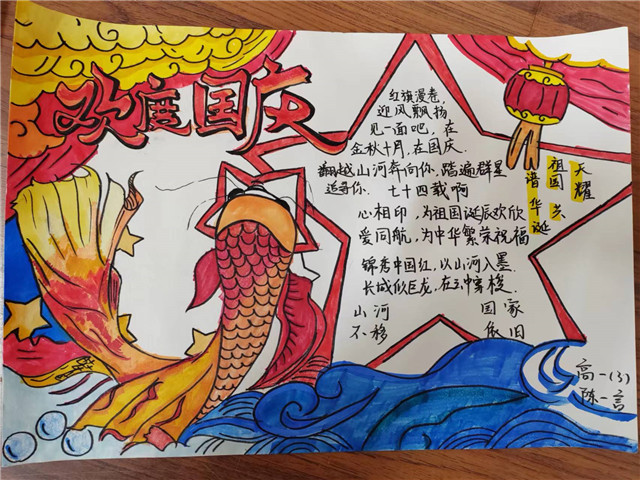 欢度国庆
红旗漫卷，
迎风飘扬
见一面吧，在
金秋十月，在国庆．
翻越山河奔向你，踏遍群星
追寻你． 七十四载啊
心相印，为祖国诞辰欢欣
爱同航，为中华繁荣祝福
锦秀中国红，以山河入墨．
长城似巨龙，在云中穿梭
山河 国家
不移 依旧
天耀
祖国
谱华诞
高一(3)
陈一言